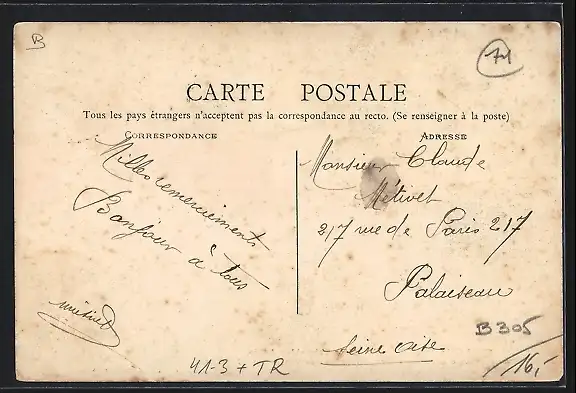 B
71
CARTE POSTALE
Tous les pays étrangers n'acceptent pas la correspondance au recto. (Se renseigner à la poste)
CORRESPONDANCE
ADRESSE
Mille remerciements
Bonjour à tous
Métivet
Monsieur Claude
Métivet
217 rue de Paris 217
Palaiseau
Seine oise
B305
41-3 + TR
16,-